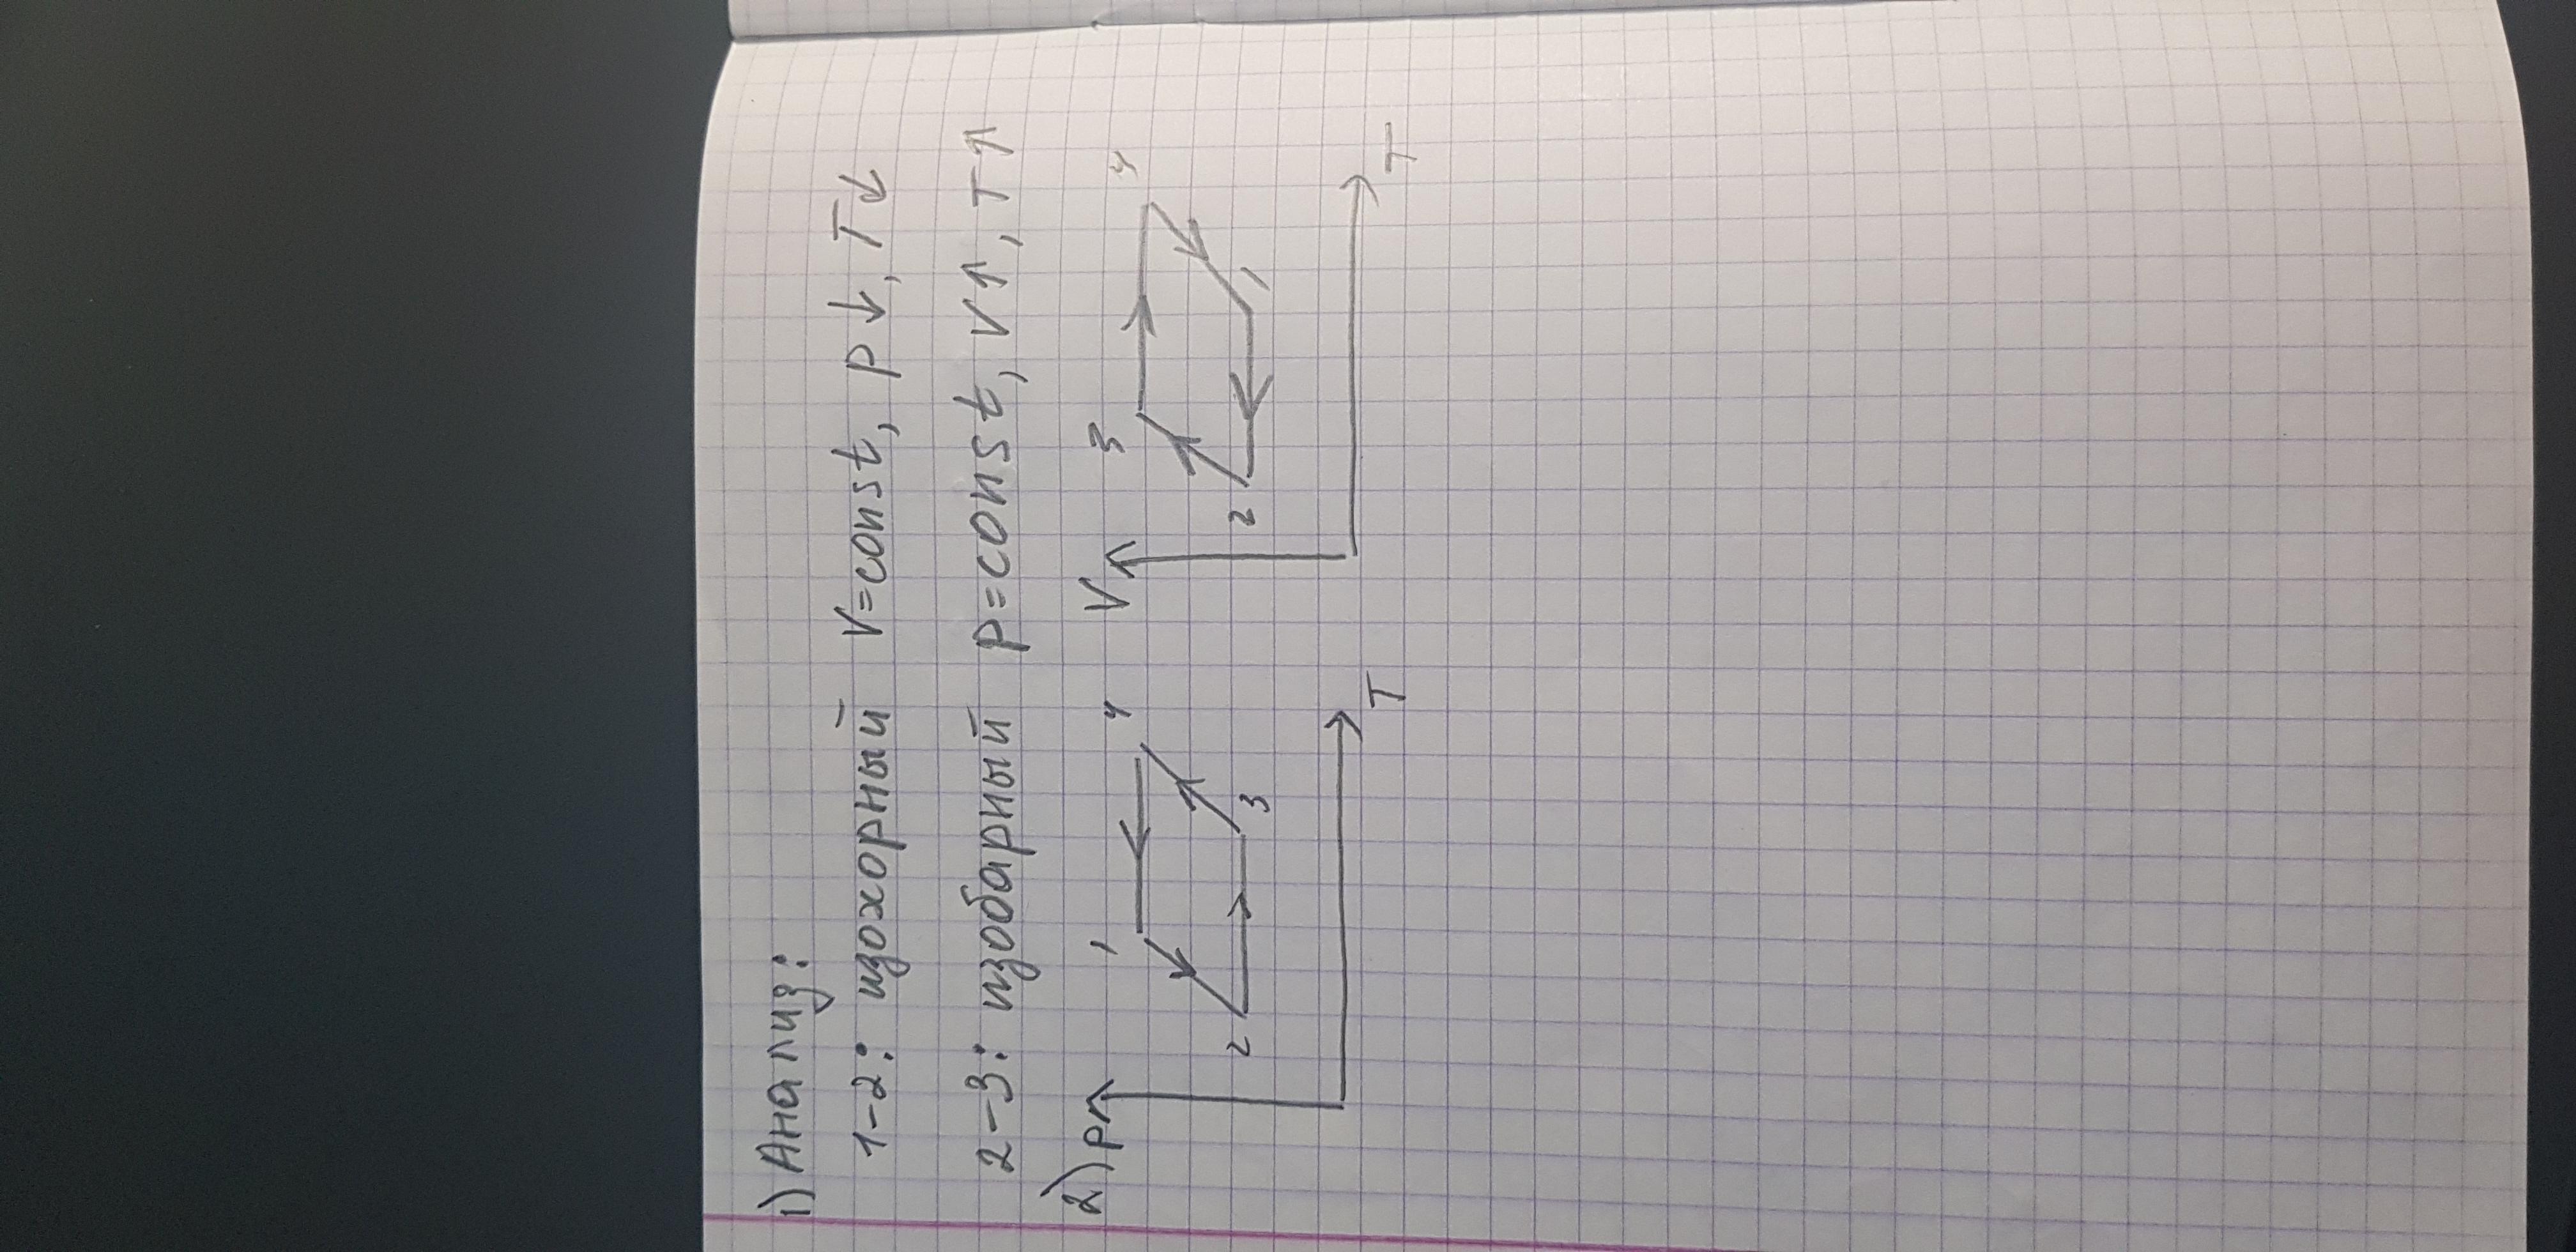 1) Анализ:
1-2: изохорный V=const, p↓, T↓
2-3: изобарный p=const, V↑, T↑
2) p 1 4 2 3 T
V 3 4 2 1 T